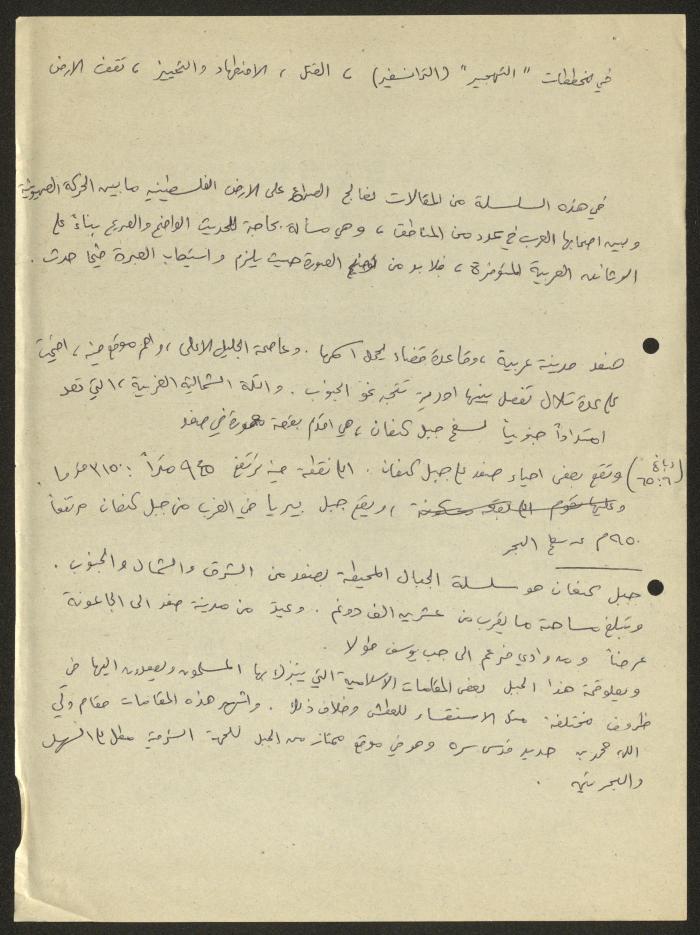 في مخططات "التهجير" (الترانسفير) ، القتل ، الاضطهاد والتمييز ، نقف الارض
في هذه السلسلة من المقالات نعالج الصراع على الارض الفلسطينية ما بين الحركة الصهيونية
وبين اصحابها العرب في عدد من المناطق ، وهي مسألة بحاجة للحديث الواضح والصريح بناءً على
الوثائق العربية المتوفرة ، فلا بد من توضيح الصورة حيث يلزم واستيعاب العبرة فيما حدث .
صفد مدينة عربية ، وقاعدة قضاء يحمل اسمها . وعاصمة الجليل الاعلى ، واهم موقع فيه ،
على عدة تلال تفصل بينها اودية تتجه نحو الجنوب . والتلة الشمالية الغربية ، التي تعد
امتداداً جنوبياً لسفح جبل كنعان ، هي اقدم بقعة معمورة في صفد
(دباغ ٦:٦٥) وتقع بعض احياء صفد على جبل كنعان . اعلى نقطة فيه ترتفع ٩٣٥ متراً : ٣١٥٠ قدما .
، ويقع جبل بيريا في الغرب من جبل كنعان مرتفعاً
٩٥٠م عن سطح البحر
جبل كنعان هو سلسلة الجبال المحيطة بصفد من الشرق والشمال والجنوب .
وتبلغ مساحة ما يقرب من عشرين الف دونم . ويمتد من مدينة صفد الى الجاعونة
عرضاً ومن وادي فرعم الى جب يوسف طولا .
ويعلو قمة هذا الجبل بعض المقامات الاسلامية التي يتبرك بها المسلمون ويصعدون اليها في
ظروف مختلفة مثل الاستسقاء للعطش وخلاف ذلك . واشهر هذه المقامات مقام ولي
الله محمد بن حديد قدس سره وهو في موقع ممتاز من الجبل للجهة الشرقية مطل على السهل
والبحر .